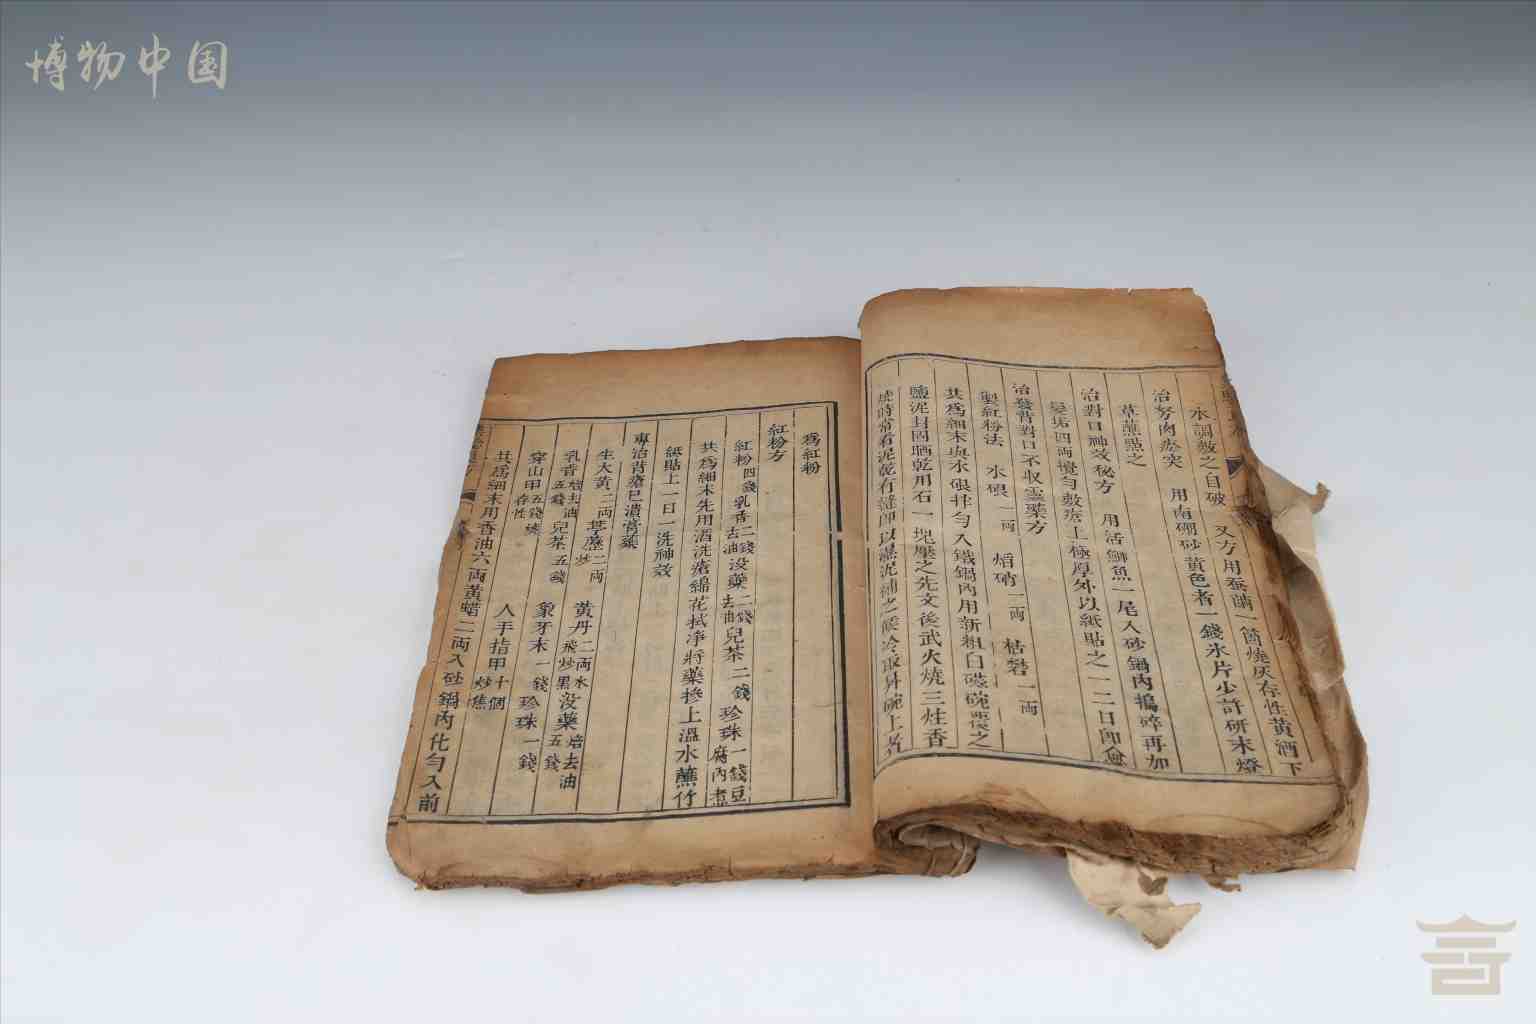 博物中国
水調敷之自破　又方用蚕繭一箇燒灰存性黄酒下
治努肉瘀突　用南硼砂黄色者一錢氷片少許研末燈
草蘸點之
治對口神效秘方　用活鯽魚一尾入砂鍋內搗碎再加
四両攪勻敷瘡上極厚外以紙貼之一二日即愈
治發背對口不収靈藥方
製紅粉法　水銀一両　焰硝一両　枯礬一両
共為細末與水銀拌勻入鐵鍋內用新粗白磁碗覆之
鹽泥封固晒乾用石一塊壓之先文後武火燒三炷香
燒時常看泥乾有縫即以濕泥補之候冷取昇碗上者
為紅粉
紅粉方
紅粉四錢乳香二錢去油没藥二錢去油兒茶二錢珍珠一錢豆腐內煮
共為細末先用酒洗瘡綿花拭净將藥摻上溫水蘸竹
紙貼上一日一洗神效
專治背瘡已潰膏藥
生大黄二両　炒二両　黄丹二両水飛炒黑没藥焙去油五錢
乳香焙去油五錢兒茶五錢　象牙末一錢　珍珠一錢
穿山甲五錢燒存性　人手指甲十個炒焦
共為細末用香油六両黄蜡二両入砂鍋內化勻入前